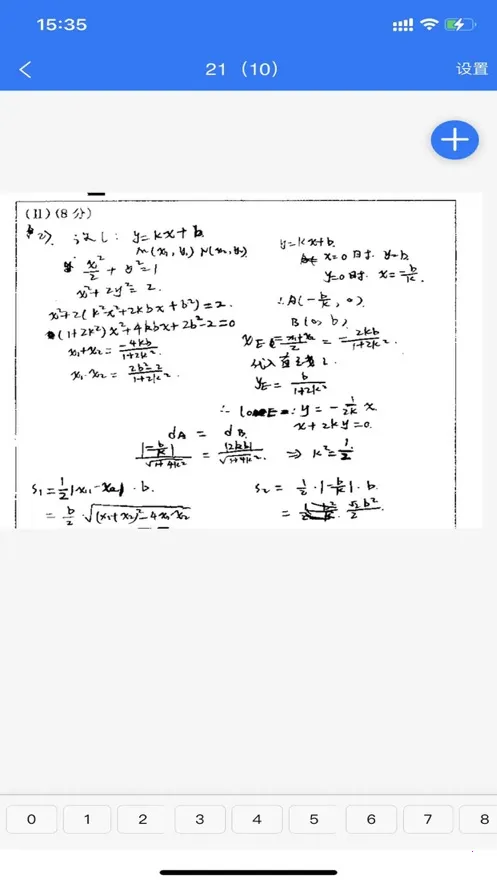 15:35
21（10）
设置
(II)(8分)
(2) 设l: y=kx+b.
M(x₁,y₁) N(x₂,y₂)
x²/2 + y²=1
x²+2y²=2.
x²+2(k²x²+2kbx+b²)=2.
(1+2k²)x²+4kbx+2b²-2=0
x₁+x₂ = -4kb/1+2k².
x₁·x₂ = 2b²-2/1+2k².
y=kx+b.
x=0时. y=b
y=0时. x=-b/k.
∴A(-b/k, 0)
B(0, b)
x_E = x₁+x₂/2 = -2kb/1+2k².
代入直线l.
y_E = b/1+2k²
∴ l_OE: y = -1/2k x
x+2ky=0.
d_A = d_B.
|-b/k|/√1+4k² = |2kb|/√1+4k² ⇒ k²=1/2
S₁=1/2|x₁-x₂|·b.
= b/2·√(x₁+x₂)²-4x₁x₂
S₂ = 1/2·|-b/k|·b.
= √2b²/2
0 1 2 3 4 5 6 7 8